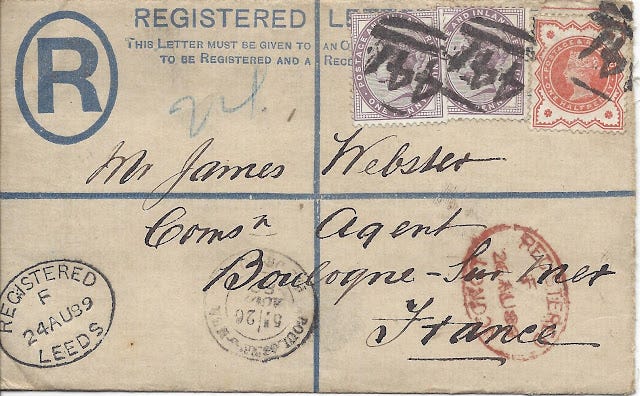 REGISTERED LETTER
THIS LETTER MUST BE GIVEN TO AN
TO BE REGISTERED AND A
R
POSTAGE AND INLAND
ONE PENNY
AND INLAND
PENNY
POSTAGE &
HALFPENNY
447
447
Mr James Webster
Comsn Agent
Boulogne-Sur Mer
France
REGISTERED
F
24AU89
LEEDS
REGISTERED
LONDON